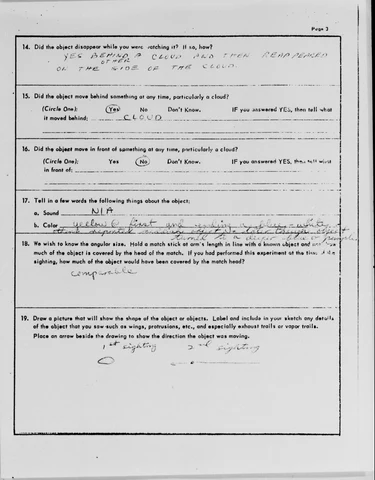 Page 3
14. Did the object disappear while you were watching it? If so, how?
YES BEHIND A CLOUD AND THEN REAPPEARED
OTHER
ON THE SIDE OF THE CLOUD.
15. Did the object move behind something at any time, particularly a cloud?
(Circle One): Yes No Don't Know. IF you answered YES, then tell what
it moved behind: CLOUD
16. Did the object move in front of something at any time, particularly a cloud?
(Circle One): Yes No Don't Know. IF you answered YES, then tell what
in front of:
17. Tell in a few words the following things about the object:
a. Sound N/A
b. Color yellow first and blue-white
turned to a
18. We wish to know the angular size. Hold a match stick at arm's length in line with a known object and
much of the object is covered by the head of the match. If you had performed this experiment at the time
sighting, how much of the object would have been covered by the match head?
comparable
19. Draw a picture that will show the shape of the object or objects. Label and include in your sketch any details
of the object that you saw such as wings, protrusions, etc., and especially exhaust trails or vapor trails.
Place an arrow beside the drawing to show the direction the object was moving.
1st sighting 2nd sighting